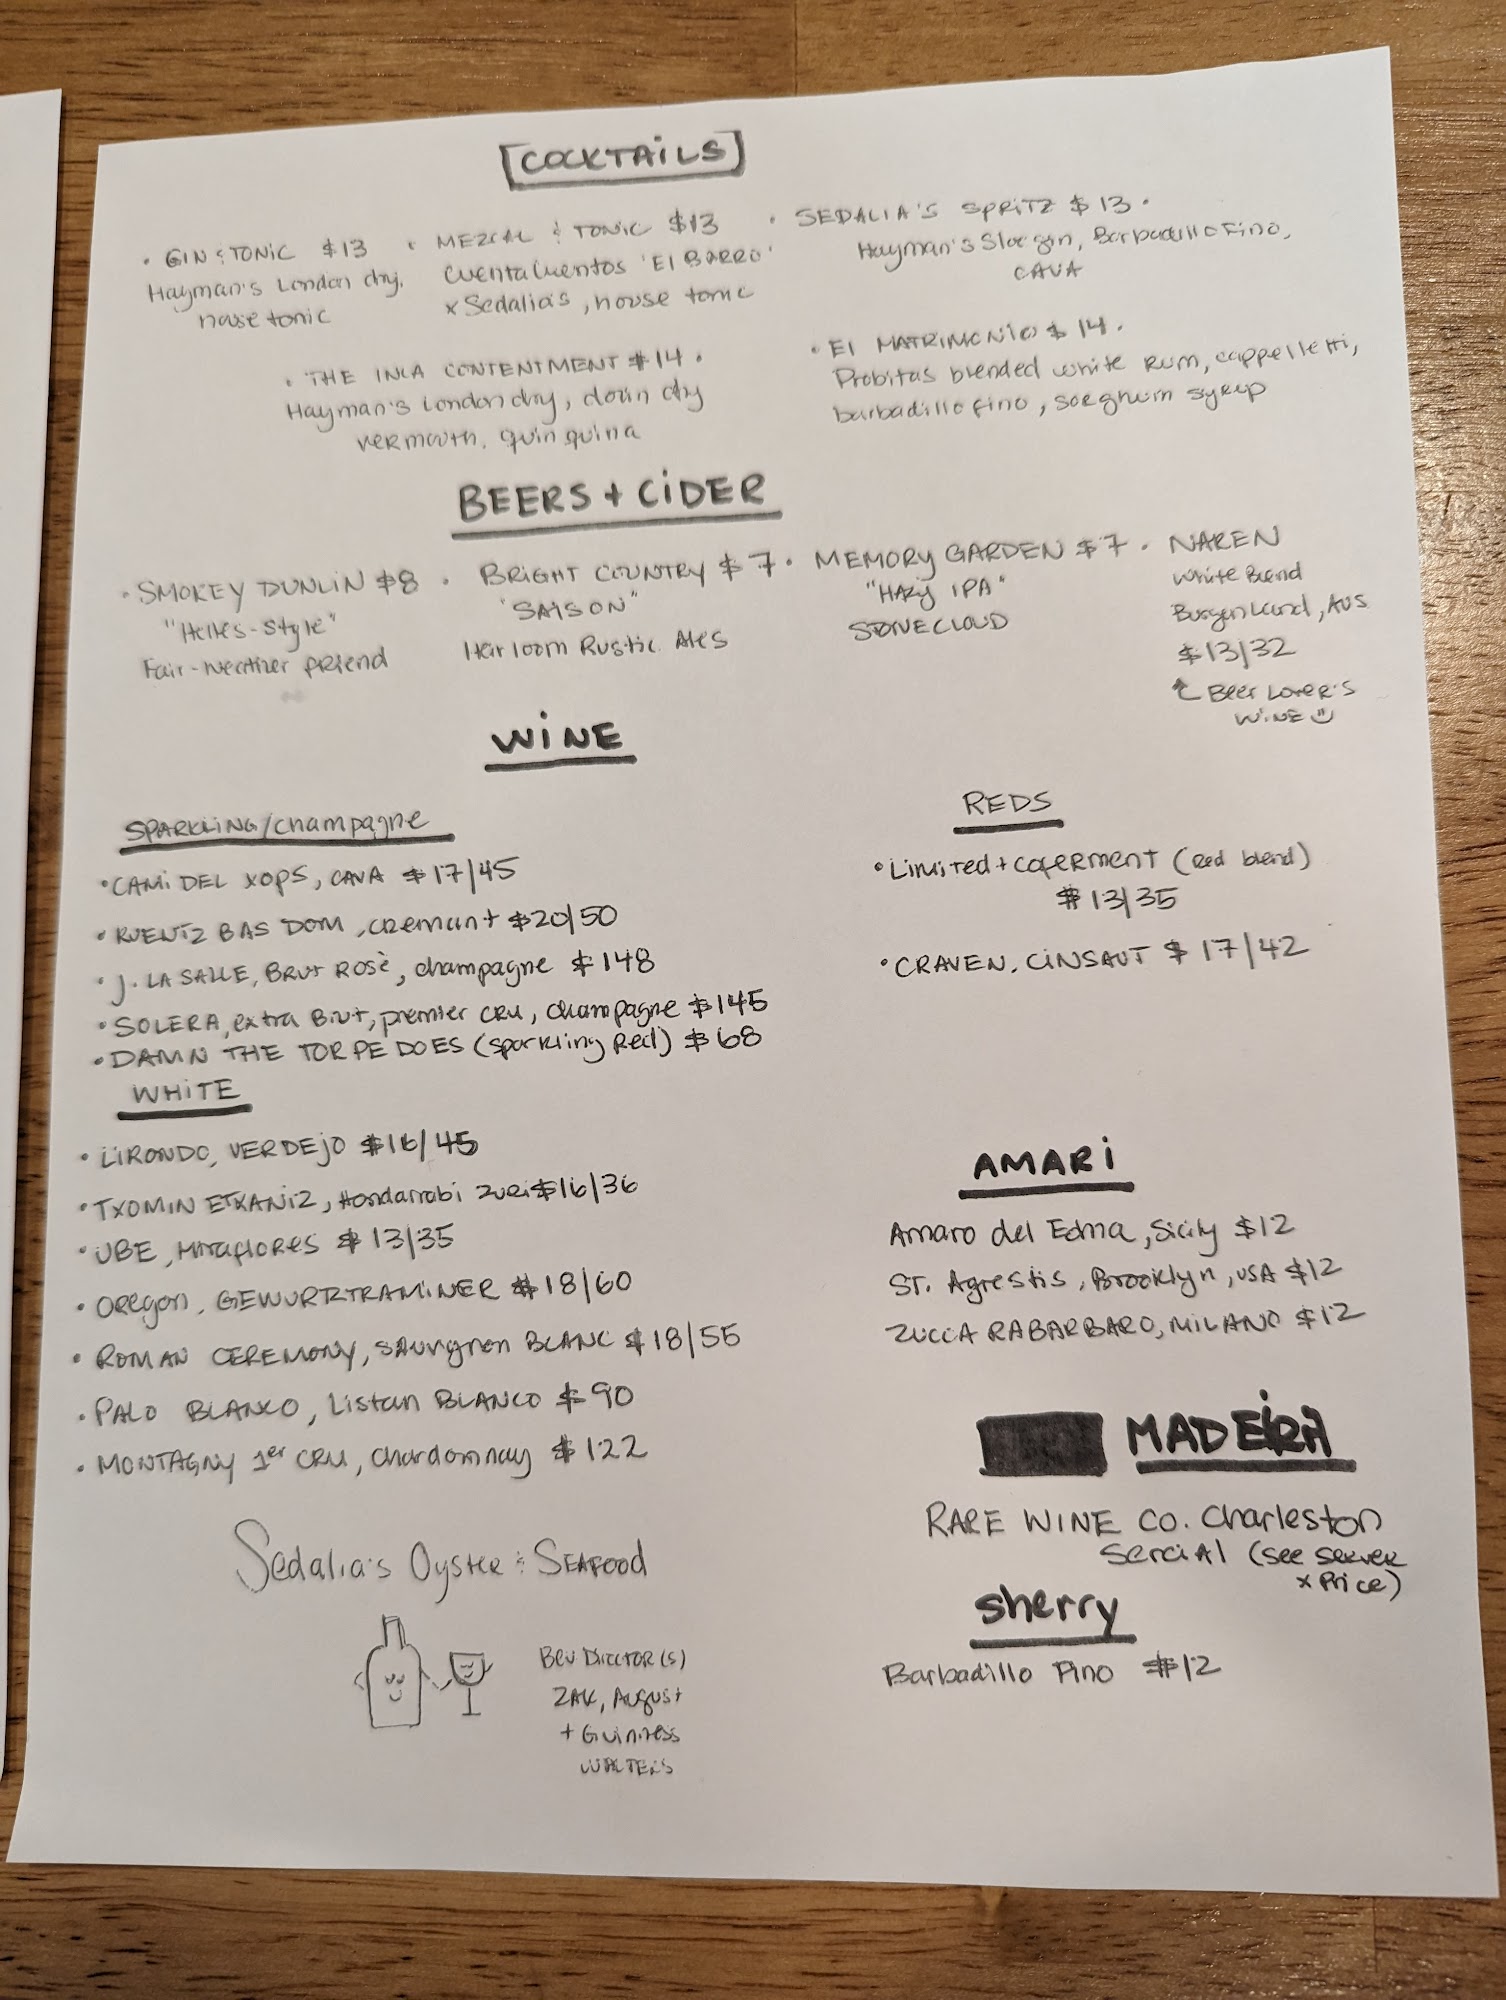 [COCKTAILS]
• GIN & TONIC $13
Hayman's London dry,
house tonic
• MEZCAL & TONIC $13
CuentaCuentos 'El BARRO'
x Sedalia's, house tonic
• SEDALIA'S SPRITZ $13 •
Hayman's Sloe gin, Barbadillo Fino,
CAVA
• THE INCA CONTENTMENT $14 •
Hayman's London dry, dolin dry
vermouth, quinquina
• El MATRIMONIO $14 •
Probitas blended white Rum, cappelletti,
barbadillo fino, sorghum syrup
BEERS + CIDER
• SMOKEY DUNLIN $8
"Helles-Style"
Fair-weather friend
• BRIGHT COUNTRY $7
"SAISON"
Heirloom Rustic Ales
• MEMORY GARDEN $7
"HAZY IPA"
STONECLOUD
• NAREN
White Blend
Burgenland, AUS
$13/32
↑ Beer Lover's
WINE
WINE
SPARKLING/Champagne
• CAMI DEL XOPS, CAVA $17/45
• RUENTZ BAS DOM, cremant $20/50
• J. LA SALLE, BRUT ROSÈ, champagne $148
• SOLERA, extra Brut, premier CRU, champagne $145
• DAMN THE TORPEDOES (sparkling Red) $68
WHITE
• LIRONDO, VERDEJO $16/45
• TXOMIN ETXANIZ, Hondarrabi zuri $16/36
• UBE, Miraflores $13/35
• Oregon, GEWURRTRAMINER $18/60
• ROMAN CEREMONY, Sauvignon BLANC $18/55
• PALO BLANCO, Listan BLANCO $90
• MONTAGNY 1er CRU, Chardonnay $122
REDS
• Limited + coferment (Red blend)
$13/35
• CRAVEN, CINSAUT $17/42
AMARI
Amaro del Edma, Sicily $12
ST. Agrestis, Brooklyn, USA $12
ZUCCA RABARBARO, MILANO $12
MADEIRA
RARE WINE CO. Charleston
Sercial (see server
x Price)
Sherry
Barbadillo Fino $12
Sedalia's Oyster & SEAFOOD
Bev Director(s)
ZAK, August
+ Guinness
WALTERS